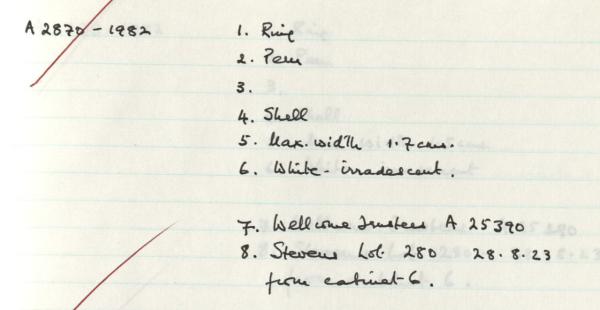 A 2870 - 1982
1. Ring
2. Peru
3.
4. Shell
5. Max. width 1.7 cms.
6. White - irradescent.
7. Wellcome Trustees A 25390
8. Stevens Lot 280 28.8.23
from cabinet 6.